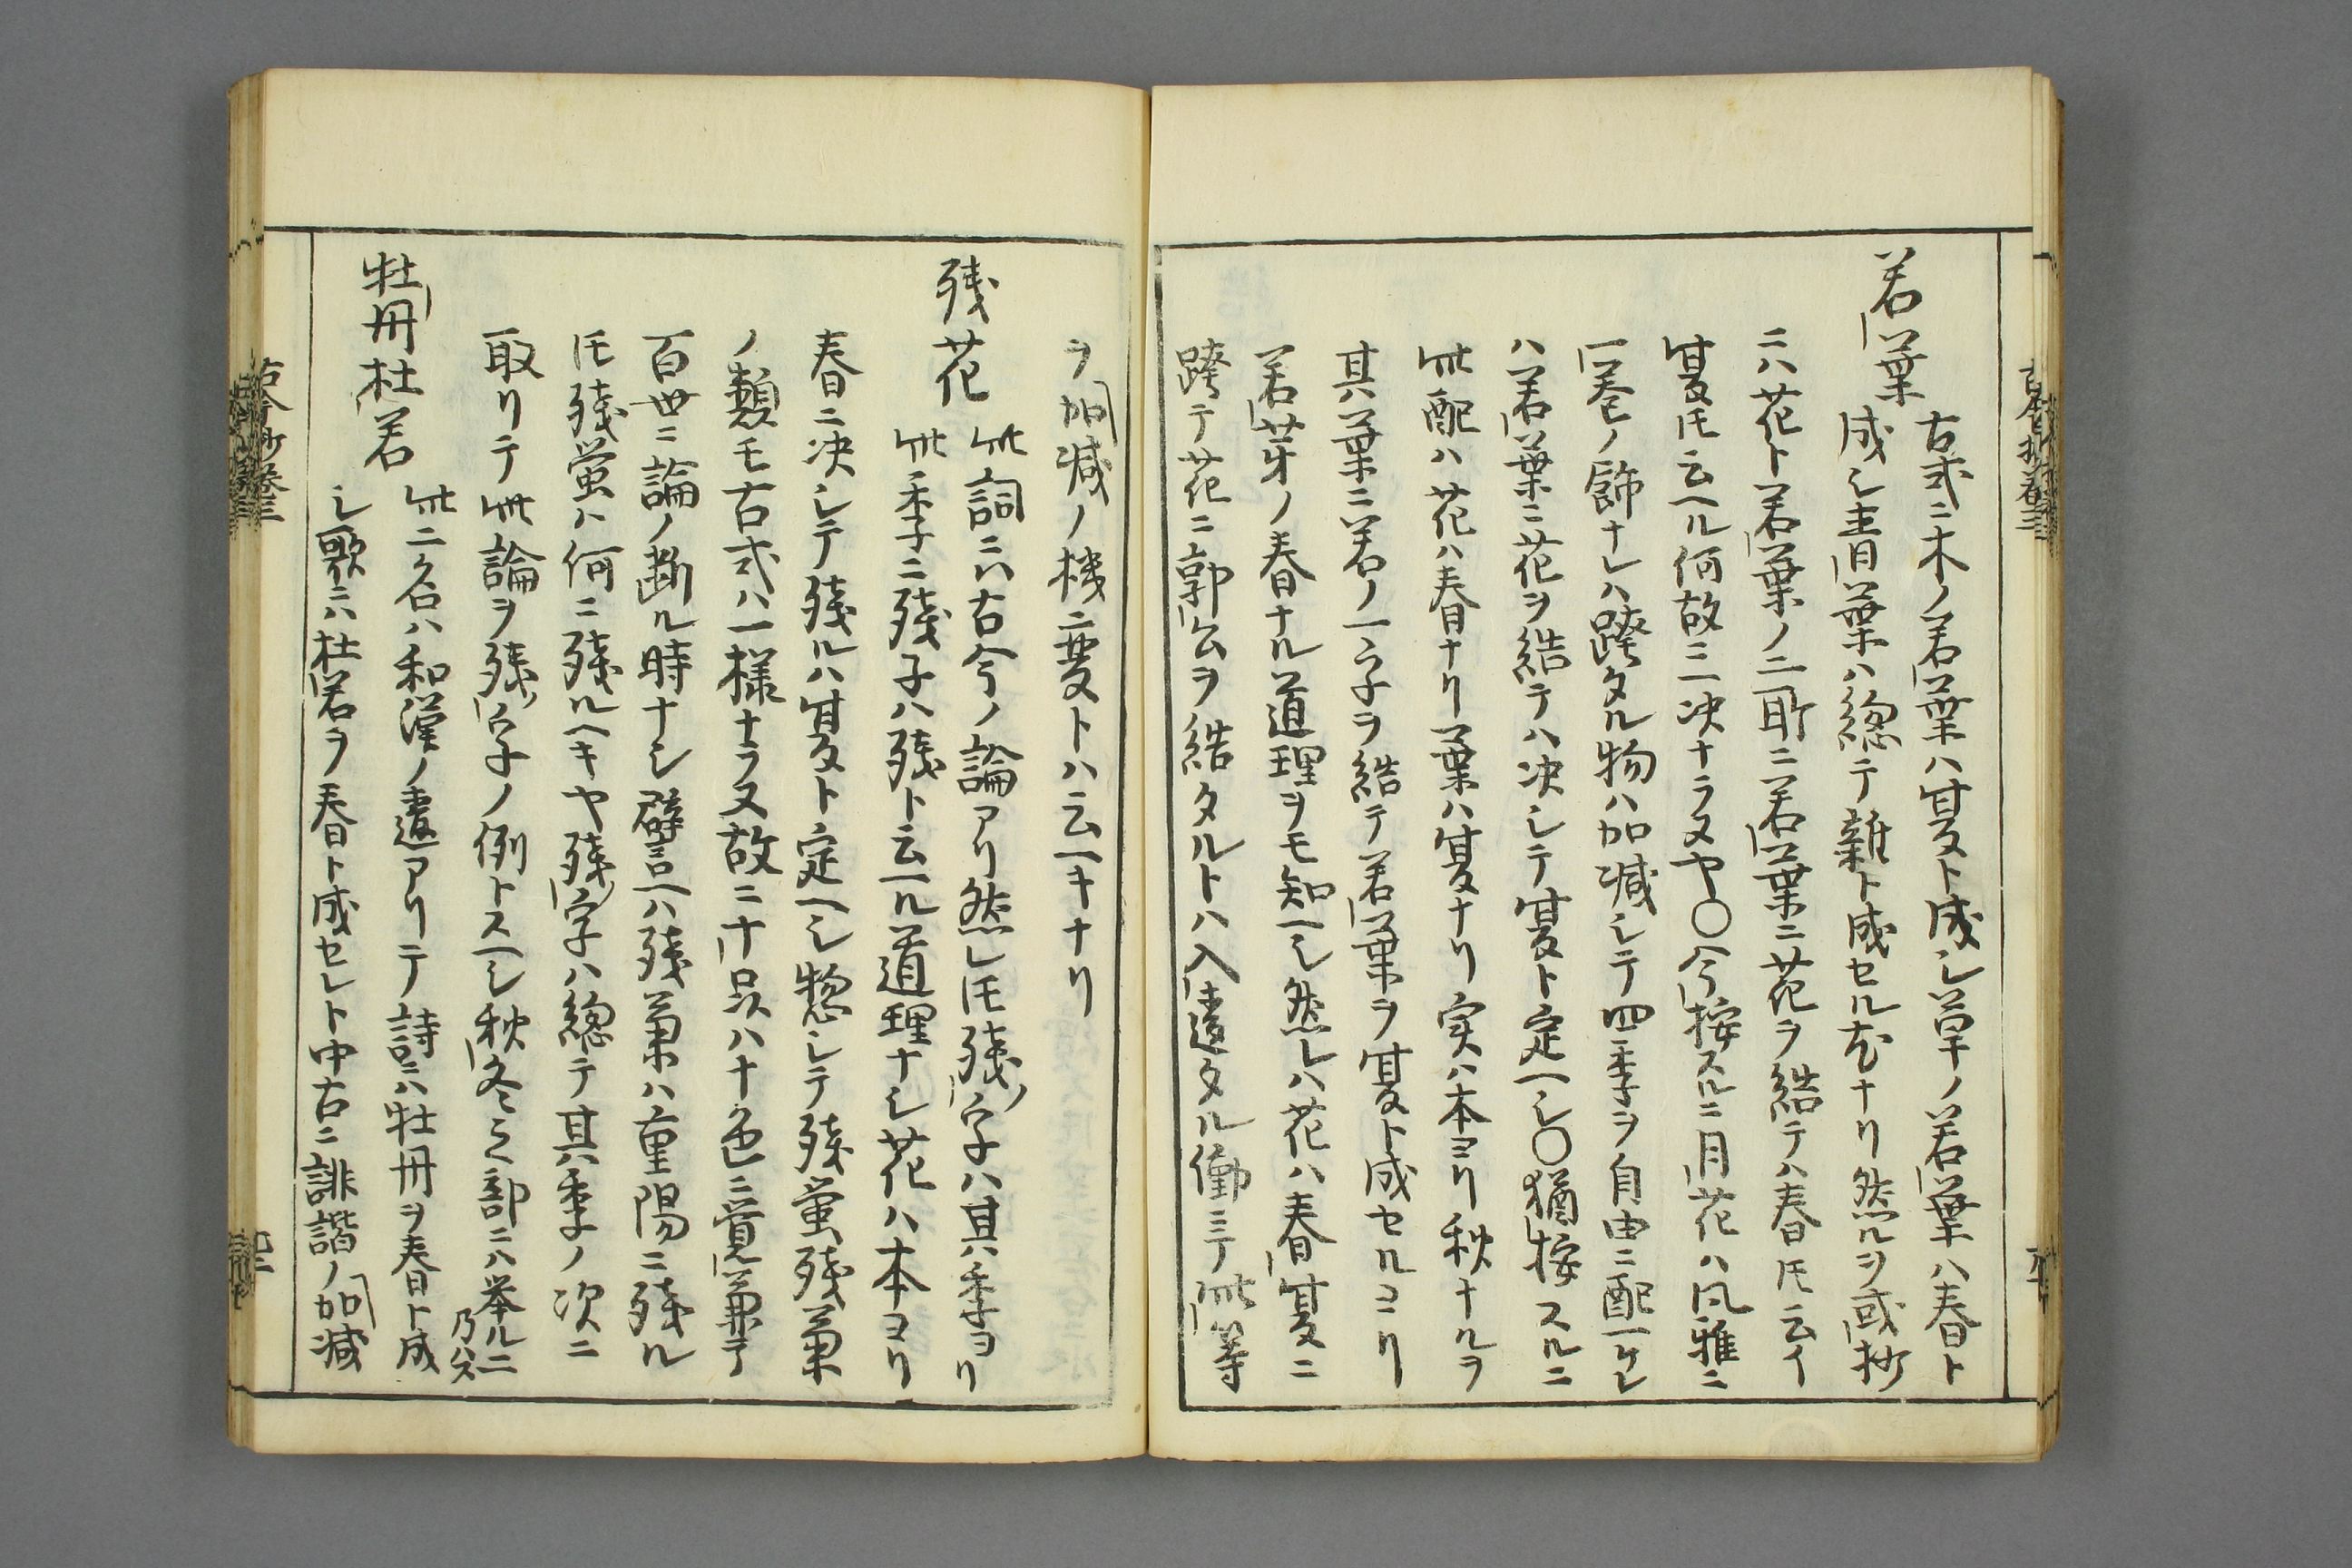 若葉
古式ニ木ノ若葉ハ夏ト成シ草ノ若葉ハ春ト
成シ青葉ハ總テ雜ト成セル尤ナリ然ルヲ或抄
ニハ花ト若葉ノ二所ニ若葉ニ花ヲ結テハ春圧云イ
夏圧云ヘル何故ニ一決ナラヌヤ○今按スルニ月花ハ風雅ニ
一巻ノ飾ナレハ跨タル物ハ加减シテ四季ヲ自由ニ配ヘケレ
ハ若葉ニ花ヲ結テハ决シテ夏ト定ヘシ○猶按スルニ
此配ハ花ハ春ナリ葉ハ夏ナリ実ハ本ヨリ秋ナルヲ
其葉ニ若ノ一字ヲ結テ若葉ヲ夏ト成セルヨリ
若芽ノ春ナル道理ヲモ知ヘシ然レハ花ハ春夏ニ
跨テ花ニ郭公ヲ結タルトハ入違タル働ニテ此等
ヲ加减ノ機ニ変トハ云ヘキナリ
残花
此詞ニハ古今ノ論アリ然レ圧残ノ字ハ其季ヨリ
此季ニ残子ハ残ト云ヘル道理ナシ花ハ本ヨリ
春ニ决シテ残ルハ夏ト定ヘシ惣シテ残蛍残菊
ノ類モ古式ハ一様ナラヌ故ニ十品ハ十色ニ覚兼テ
百世ニ論ノ断ル時ナシ譬ヘハ残菊ハ重陽ニ残ル
圧残蛍ハ何ニ残ルヘキヤ残ノ字ハ總テ其季ノ次ニ
取リテ此論ヲ残ノ字ノ例トスヘシ秋冬之部ニハ挙ルニ
乃ハス
牡丹杜若
此二名ハ和漢ノ違アリテ詩ニハ牡丹ヲ春ト成
シ歌ニハ杜若ヲ春ト成セレト中古ニ誹諧ノ加减
古今抄巻三
九二